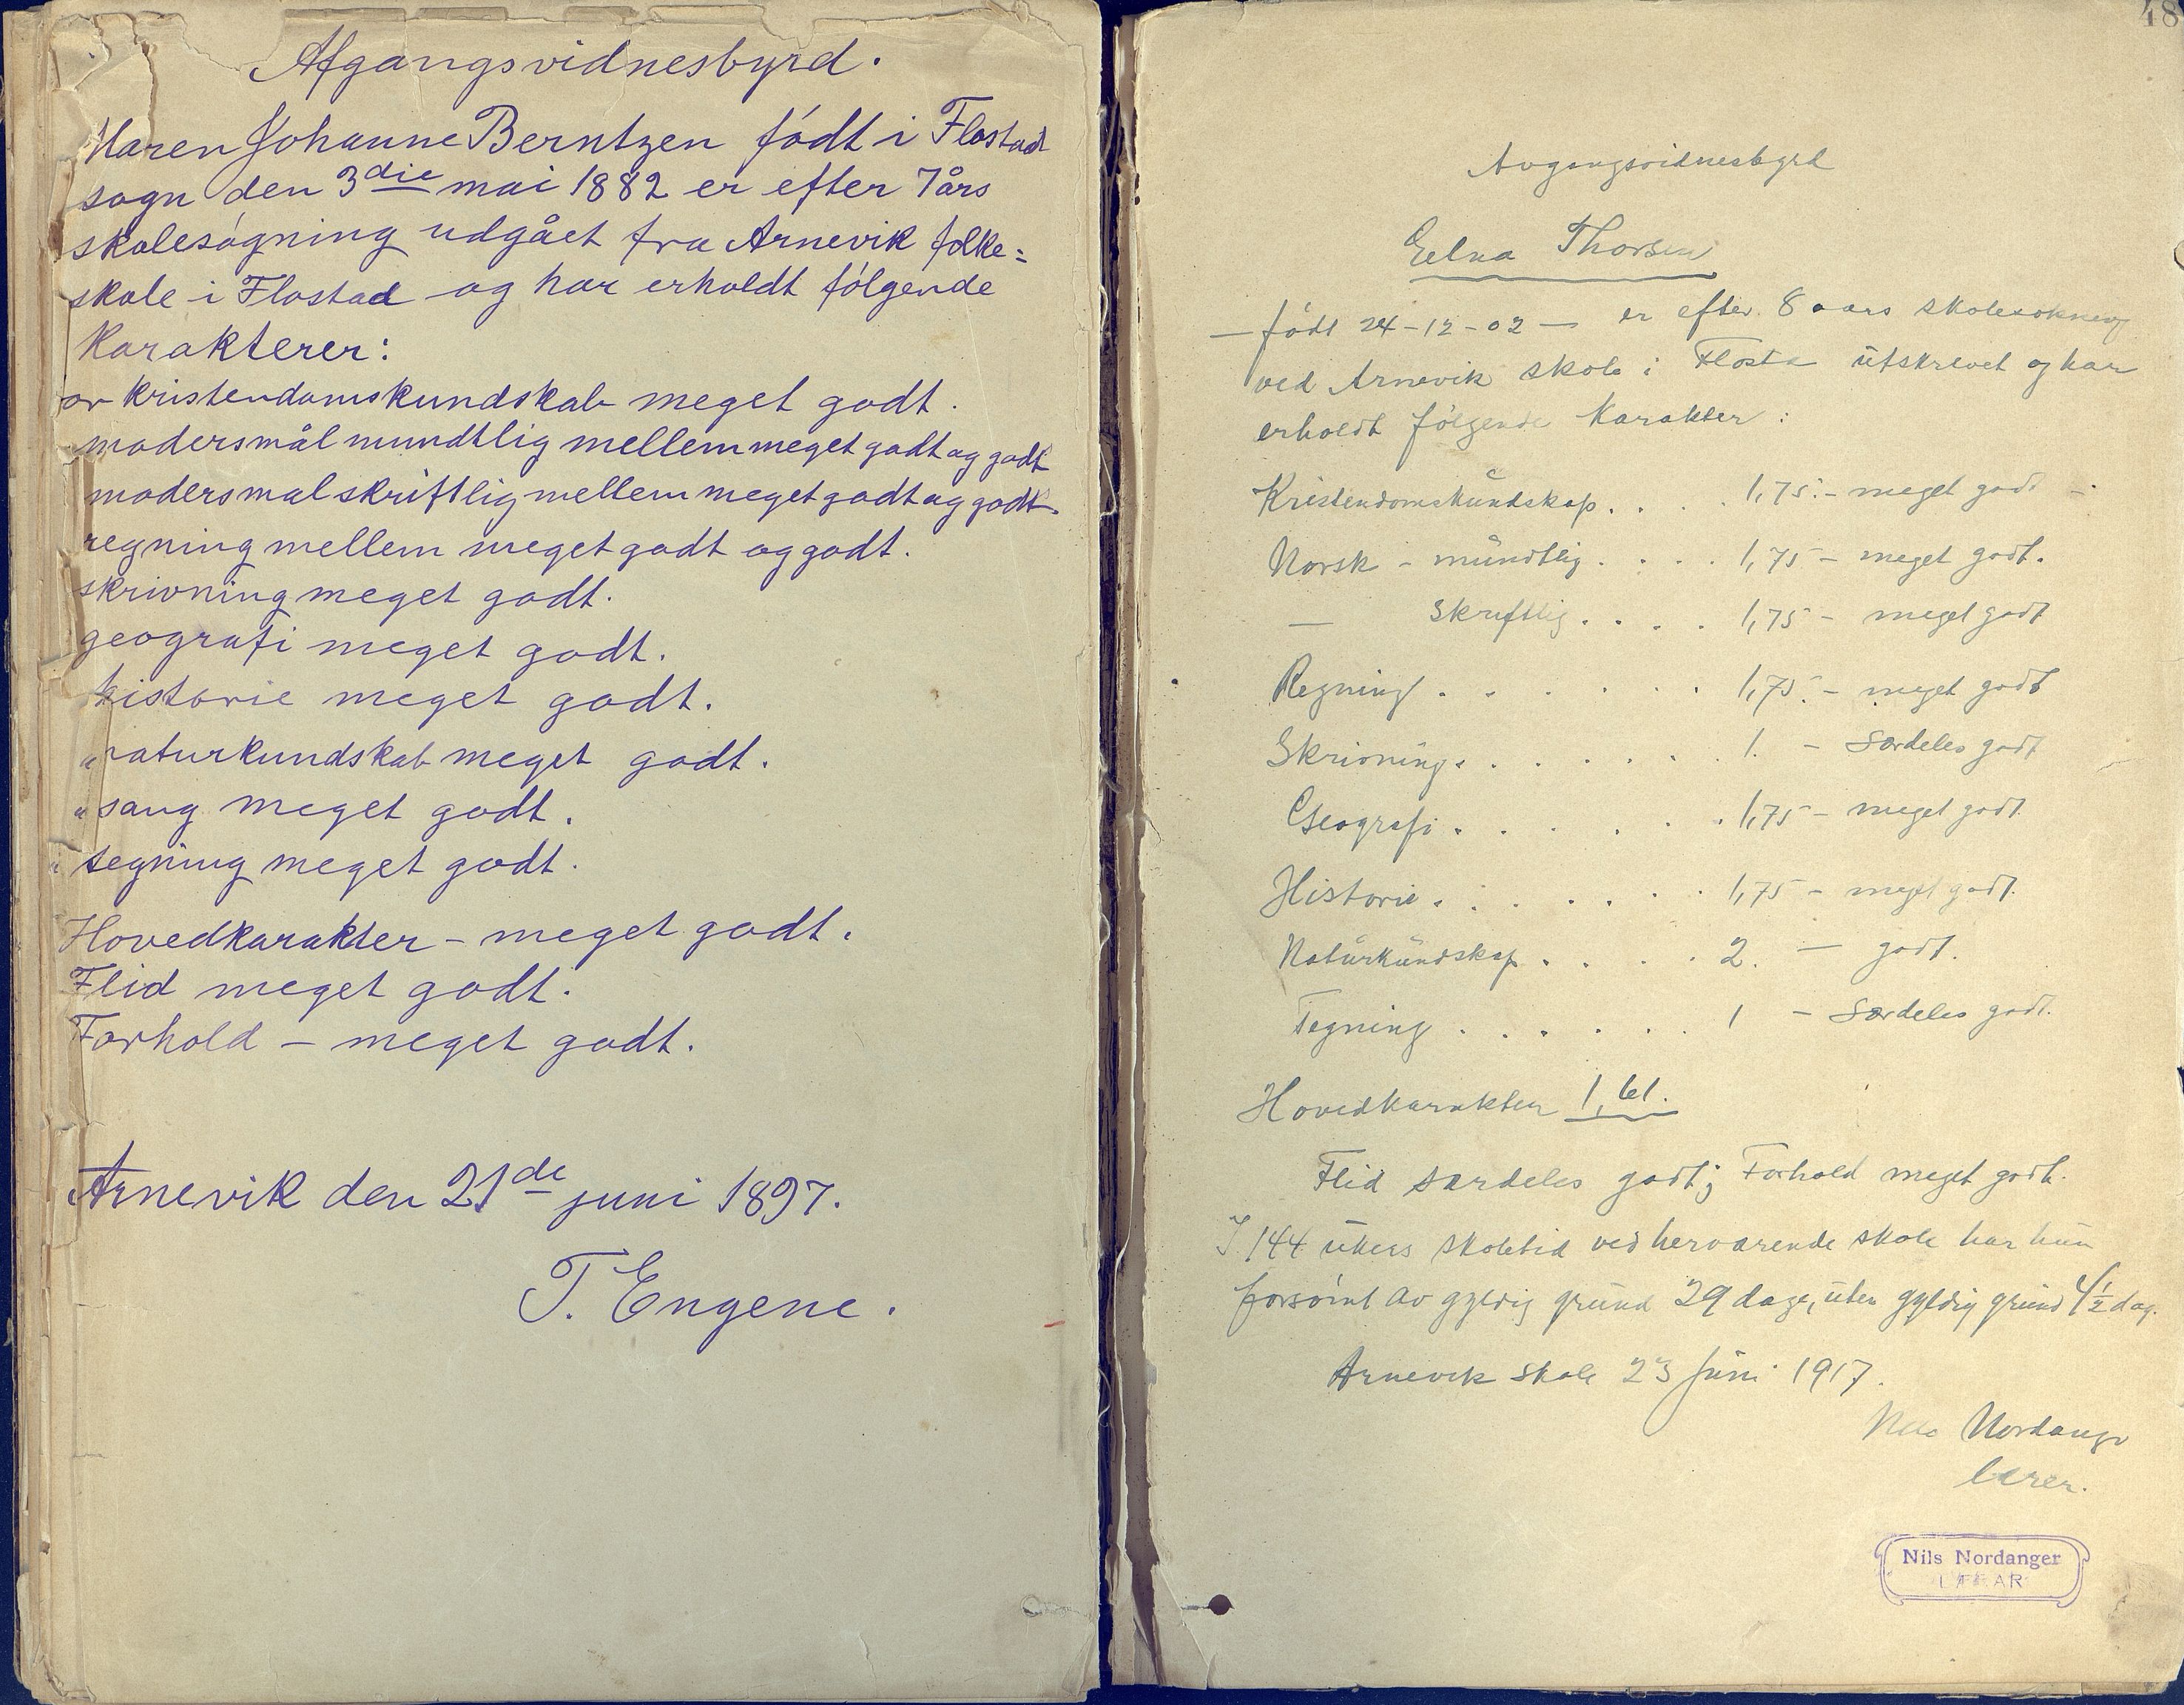 Afgangsvidnesbyrd.
Maren Johanne Berntzen födt i Flostad
sogn den 3die mai 1882 er efter 7 års
skolesögning udgået fra Arnevik folke=
skole i Flostad og har erholdt fölgende
Karakterer:
kristendomskundskab meget godt.
modersmål mundtlig mellem meget godt og godt
modersmal skriftlig mellem meget godt og godt.
regning mellem meget godt og godt.
skrivning meget godt.
geografi meget godt.
historie meget godt.
" naturkundskab meget godt.
" sang meget godt.
" tegning meget godt.
Hovedkarakter - meget godt.
Flid meget godt.
Forhold - meget godt.
Arnevik den 21de juni 1897.
T. Engene.
48
Avgangsvidnesbyrd
Thorsen
— födt 24-12-02 — er efter 8 aars skolesökning
ved Arnevik skole i Flosta utskrevet og har
erholdt fölgende Karakter:
Kristendomskundskap. . . . 1,75. - meget godt -
Norsk - mundtlig . . . . 1,75 - meget godt.
— Skriftlig . . . . 1,75 - meget godt
Regning . . . . . . 1,75. - meget godt
Skrivning . . . . . . 1. - Særdeles godt
Geografi . . . . . . 1,75 - meget godt.
Historie . . . . . . 1,75 - meget godt.
Naturkundskap . . . . 2. — godt.
Tegning . . . . . . 1 - Særdeles godt.
Hovedkarakter 1,61.
Flid særdeles godt; Forhold meget godt.
I 144 ukers skoletid ved herværende skole har hun
forsömt av gyldig grund 29 dage, uten gyldig grund 4 1/2 dag.
Arnevik skole 23 Juni 1917.
Nils Nordanger
lærer.
Nils Nordanger
LÆRAR